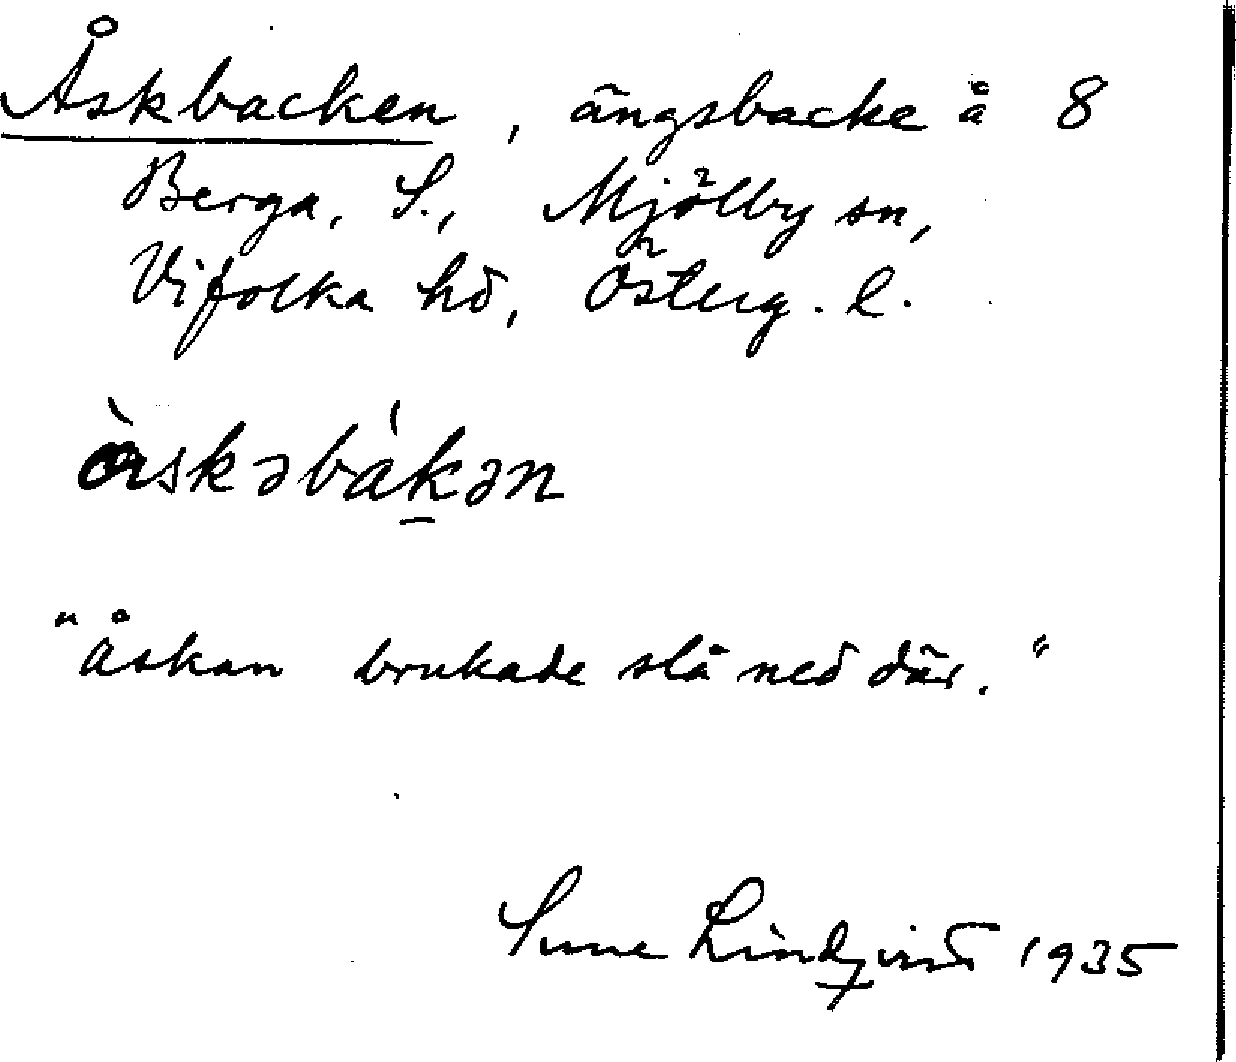 Åskbacken, ängsbacke å 8
Berga, S., Mjölby sn,
Vifolka hd, Österg. l.
àskəbákən
"Åskan brukade slå ned där."
Sune Lindqvist 1935